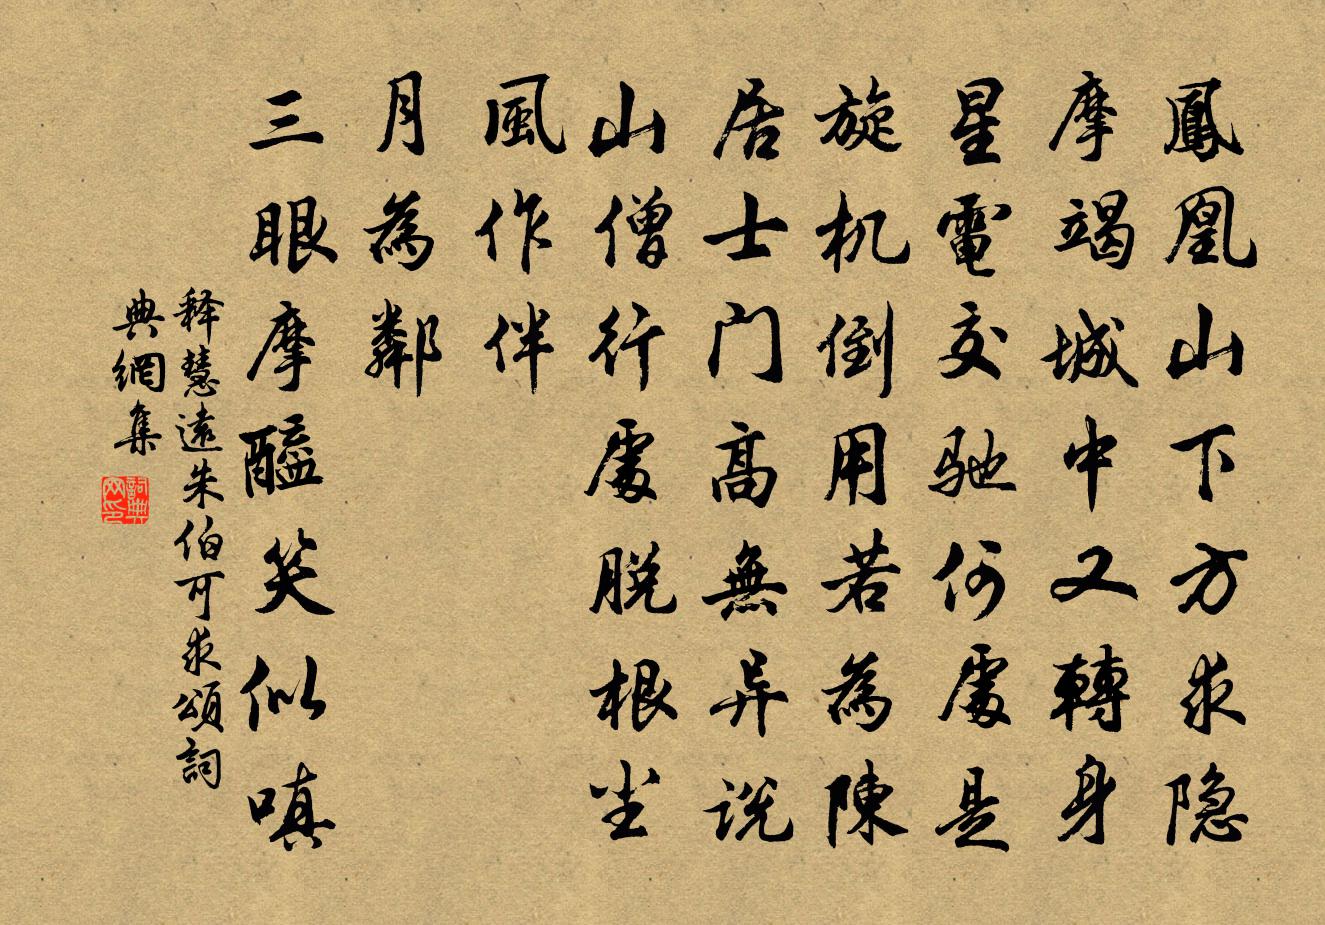 鳳凰山下方求隐
摩竭城中又轉身
星電交驰何處是
旋机倒用若為陳
居士门高無异说
山僧行處脱根尘
風作伴
月為鄰
三眼摩醯笑似嗔
释慧遠朱伯可求頌詞
典網集
詞典
网印